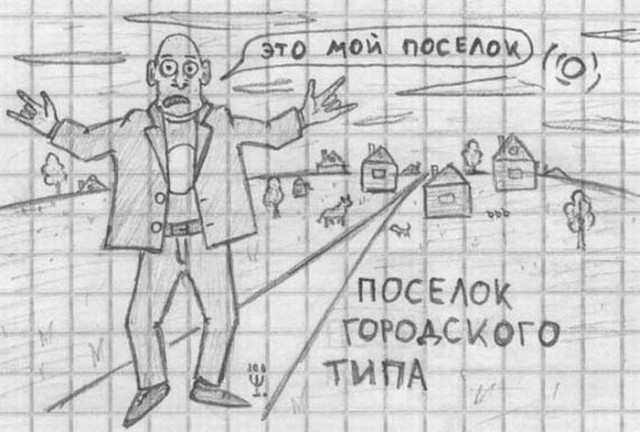 ЭТО МОЙ ПОСЕЛОК
ПОСЕЛОК
ГОРОДСКОГО
ТИПА